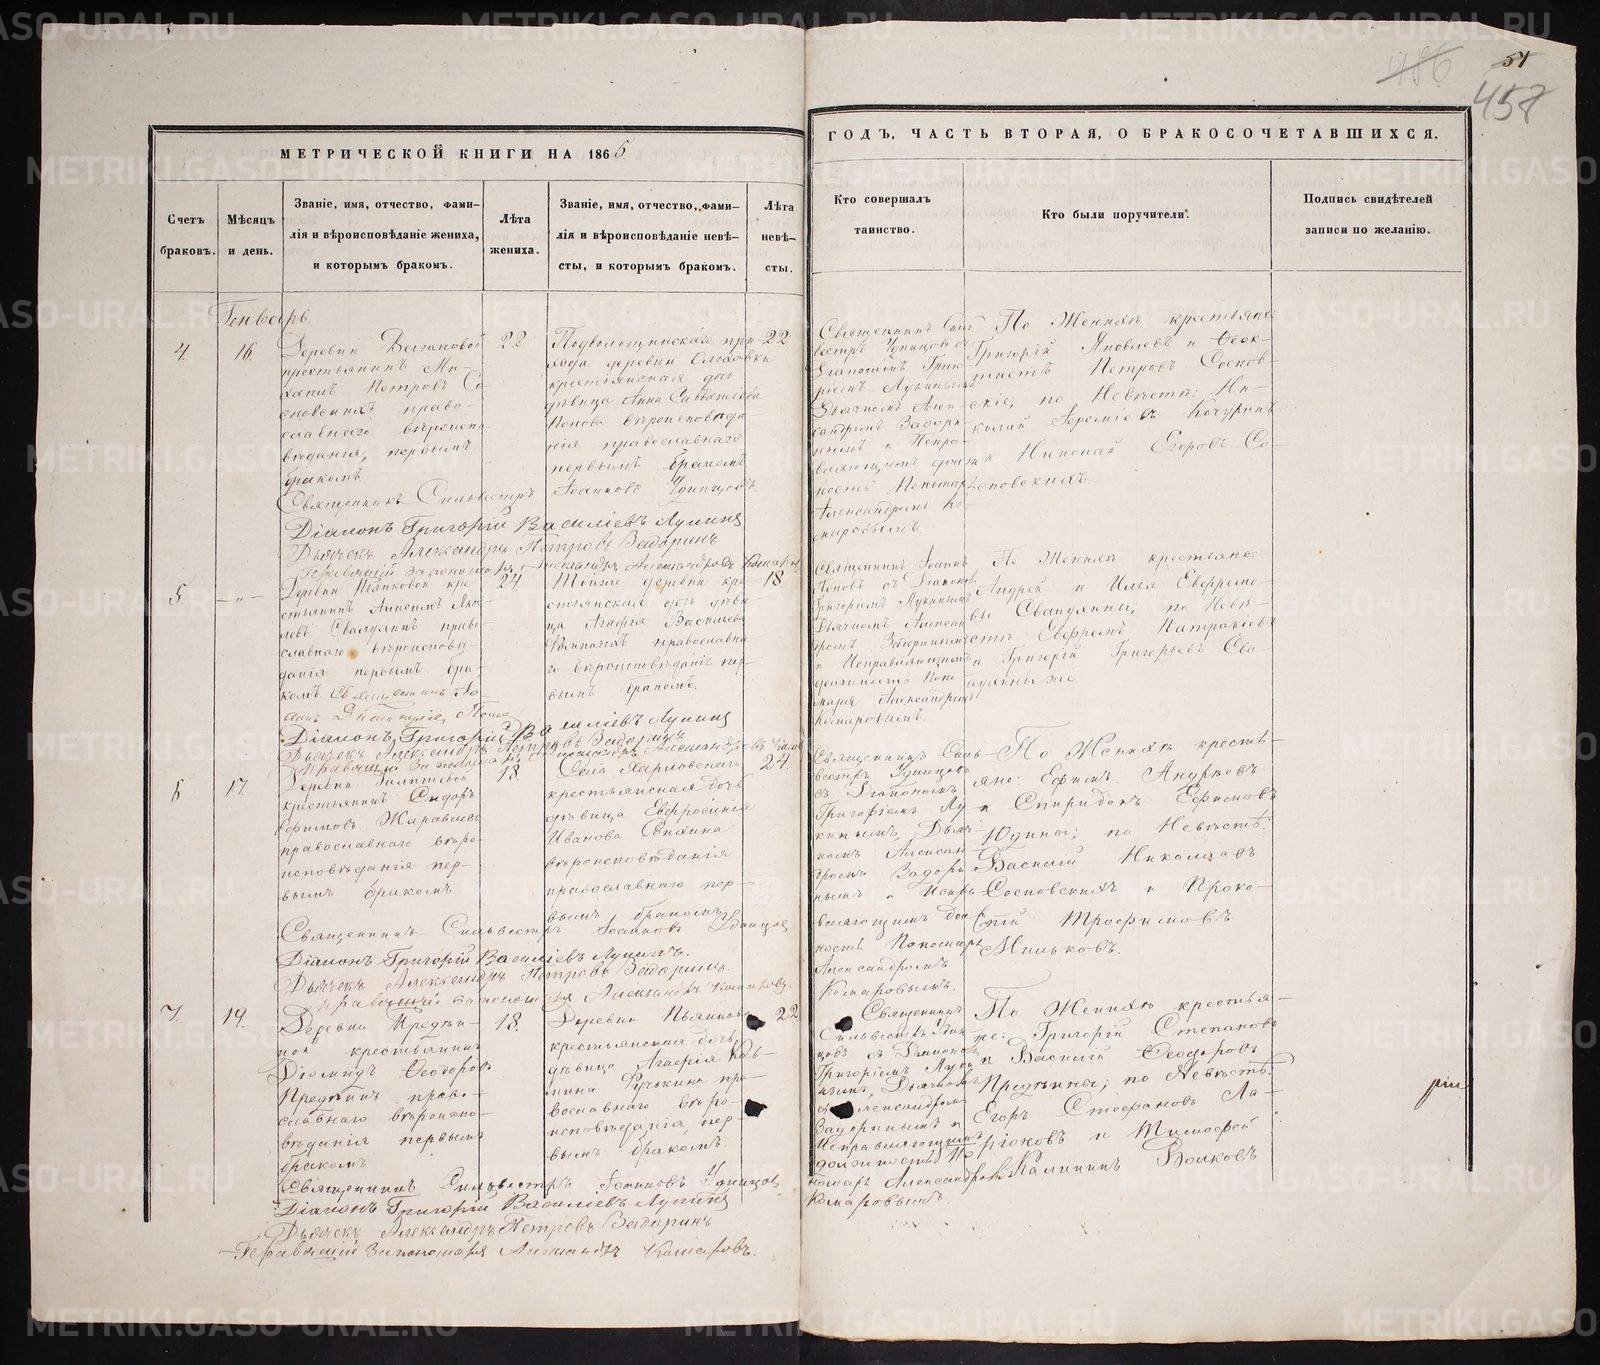 51
486
457
МЕТРИЧЕСКОЙ КНИГИ НА 1865
ГОДЪ, ЧАСТЬ ВТОРАЯ, О БРАКОСОЧЕТАВШИХСЯ.
Счетъ
браковъ.
Мѣсяцъ
и день.
Званіе, имя, отчество, фами-
лія и вѣроисповѣданіе жениха,
и которымъ бракомъ.
Лѣта
жениха.
Званіе, имя, отчество, фами-
лія и вѣроисповѣданіе невѣ-
сты, и которымъ бракомъ.
Лѣта
невѣ-
сты.
Кто совершалъ
таинство.
Кто были поручители.
Подпись свидѣтелей
записи по желанію.
Генварь
4.
16.
Деревни
крестьянинъ Ми-
хаилъ Петровъ Со-
сновскихъ право-
славнаго вѣроиспо-
вѣданія, первымъ
бракомъ
22
Подволошинскаго при-
хода деревни Ольховки
крестьянская дочь
дѣвица Анна Савватіева
Попова вѣроисповѣда
нія православнаго
первымъ бракомъ
22
Священникъ Силь
вестръ Удинцовъ съ
Діакономъ Григо
ріемъ Лукинымъ
Дьячкомъ Алек-
сандромъ Задори
нымъ и Исправ-
ляющимъ долж
ность Пономаря
Александромъ Ко-
маровымъ.
По Женихѣ крестьяне
Григорій Яковлевъ и Ѳеок-
тистъ Петровъ Соснов-
скіе; по Невѣстѣ: Ни-
колай Іереміевъ Кочуринъ
и Николай Егоровъ Со-
сновскихъ.
Священникъ Сильвестръ Іоанновъ Удинцовъ.
Діаконъ Григорій Василіевъ Лукинъ
Дьячекъ Александръ Петровъ Задоринъ
Правящій за пономаря Александръ Александровъ Комаровъ
5.
— „ —
Деревни Пьянковой кре
стьянинъ Анисимъ Яков
левъ Свалухинъ право-
славнаго вѣроисповѣ-
данія первымъ бра-
комъ
24.
Тойже деревни кре
стьянская дочь дѣви
ца Агафія Василіева
православна
го вѣроисповѣданія пер-
вымъ бракомъ.
18
Священникъ Іоаннъ
Поповъ съ Діаконо
Григоріемъ Лукинымъ
Дьячкомъ Алексан
дромъ Задоринымъ
и Исправляющимъ
должность Поно
маря Александромъ
Комаровымъ
По Женихѣ крестьяне:
Андрей и Илья Евфремо-
вы Свалухины; по Невѣ-
стѣ Евфремъ Патракіевъ
и Григорій Григорьевъ Сва-
лухиныже.
Священникъ Іо-
аннъ Поповъ
Діаконъ Григорій Василіевъ Лукинъ
Дьячекъ Александръ Петровъ Задоринъ
Правящій за пономаря Александръ Александровъ
6
17.
Деревни
крестьянинъ Сидоръ
Ефимовъ Журавлевъ
православнаго вѣро-
исповѣданія пер-
вымъ бракомъ
18.
Села Харловскаго
крестьянская дочь
дѣвица Евфросинія
Иванова
вѣроисповѣданія
православнаго пер-
вымъ бракомъ
24.
Священникъ Силь-
вестръ Удинцовъ
съ Діакономъ
Григоріемъ Лу
кинымъ, Дьяч-
комъ Алексан
дромъ Задори
нымъ и Испра
вляющимъ дол
ность Пономаря
Александромъ
Комаровымъ.
По Женихѣ кресть-
яне: Ефимъ Андреевъ
и Спиридонъ Ефимовъ
Юдины; по Невѣстѣ:
Василій Николаевъ
Сосновскихъ и Проко-
пій Трофимовъ
Мильковъ.
Священникъ Сильвестръ Іоанновъ Удинцовъ
Діаконъ Григорій Василіевъ Лукинъ.
Дьячекъ Александръ Петровъ Задоринъ.
правящій за пономаря Александръ Комаровъ.
7.
19.
Деревни Предѣи-
ной крестьянинъ
Діомидъ Ѳеодоровъ
Предѣинъ право-
славнаго вѣроиспо-
вѣданія первымъ
бракомъ
18.
Деревни Пьянковой
крестьянская дочь
дѣвица Агафія Козь-
мина Ручкина пра-
вославнаго вѣро-
исповѣданія, пер-
вымъ бракомъ.
22
Священникъ
Сильвестръ Удин-
цовъ съ Діакономъ
Григоріемъ Луки
нымъ, Дьячкомъ
Александромъ
Задоринымъ и
Исправляющимъ
должность По-
номаря Александромъ
Комаровымъ.
По Женихѣ крестья-
не: Григорій Степановъ
и Василій Ѳеодоровъ
Предѣины; по Невѣстѣ:
Егоръ Стефановъ Ла-
ріоновъ и Тимофей
Калининъ Волковъ
Священникъ Сильвестръ Іоанновъ Удинцовъ
Діаконъ Григорій Василіевъ Лукинъ
Дьячекъ Александръ Петровъ Задоринъ
Правящій за пономаря Александръ Комаровъ.
METRIKI.GASO-URAL.RU